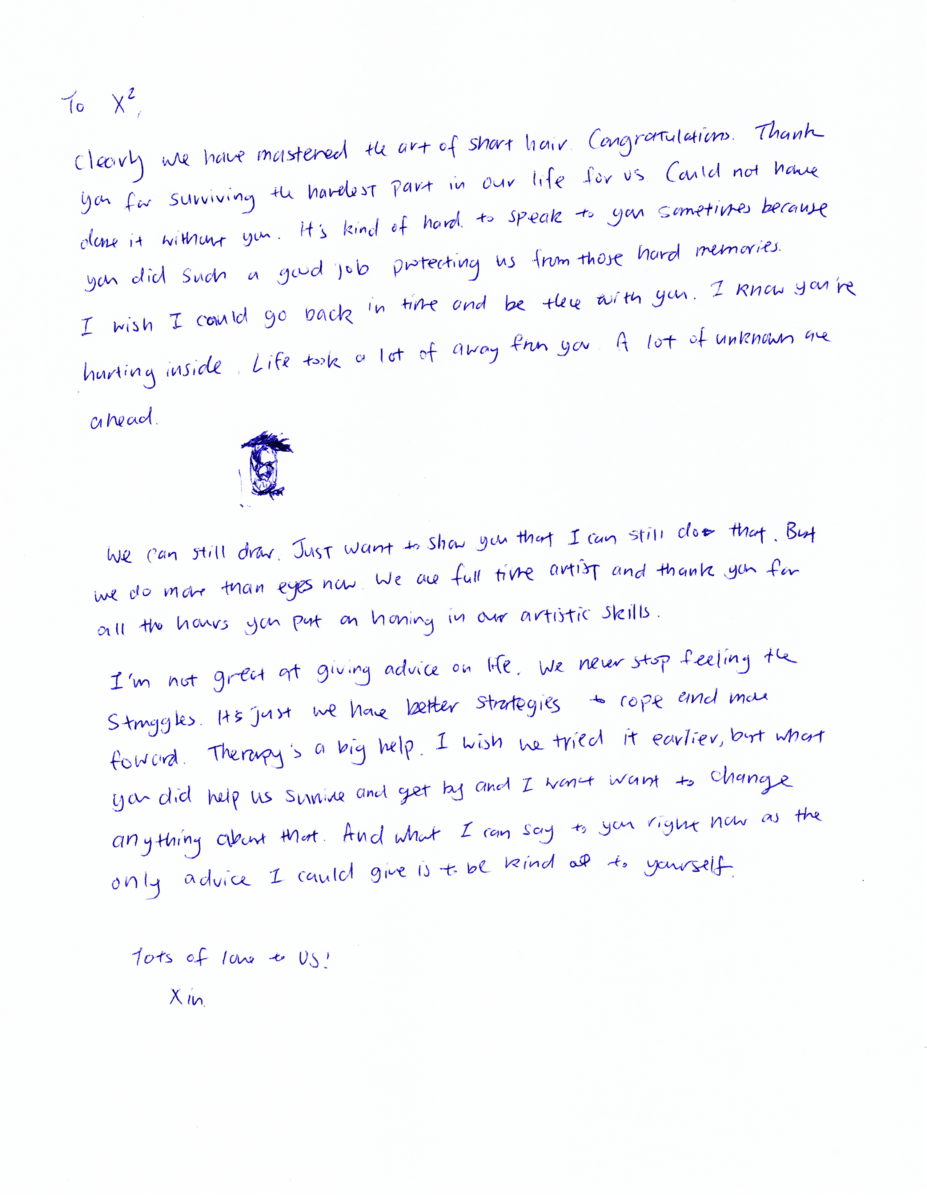 To X²,
Clearly we have mastered the art of short hair. Congratulations. Thank
you for surviving the hardest part in our life for us Could not have
done it without you. It's kind of hard to speak to you sometimes because
you did such a good job protecting us from those hard memories.
I wish I could go back in time and be there with you. I know you're
hurting inside. Life took a lot of away from you. A lot of unknown are
ahead.
We can still draw. Just want to show you that I can still do that. But
we do more than eyes now. We are full time artist and thank you for
all the hours you put on honing in our artistic skills.
I'm not great at giving advice on life. We never stop feeling the
struggles. It's just we have better strategies to cope and move
foward. Therapy's a big help. I wish we tried it earlier, but what
you did help us survive and get by and I won't want to change
anything about that. And what I can say to you right now as the
only advice I could give is to be kind to yourself.
lots of love to us!
Xin